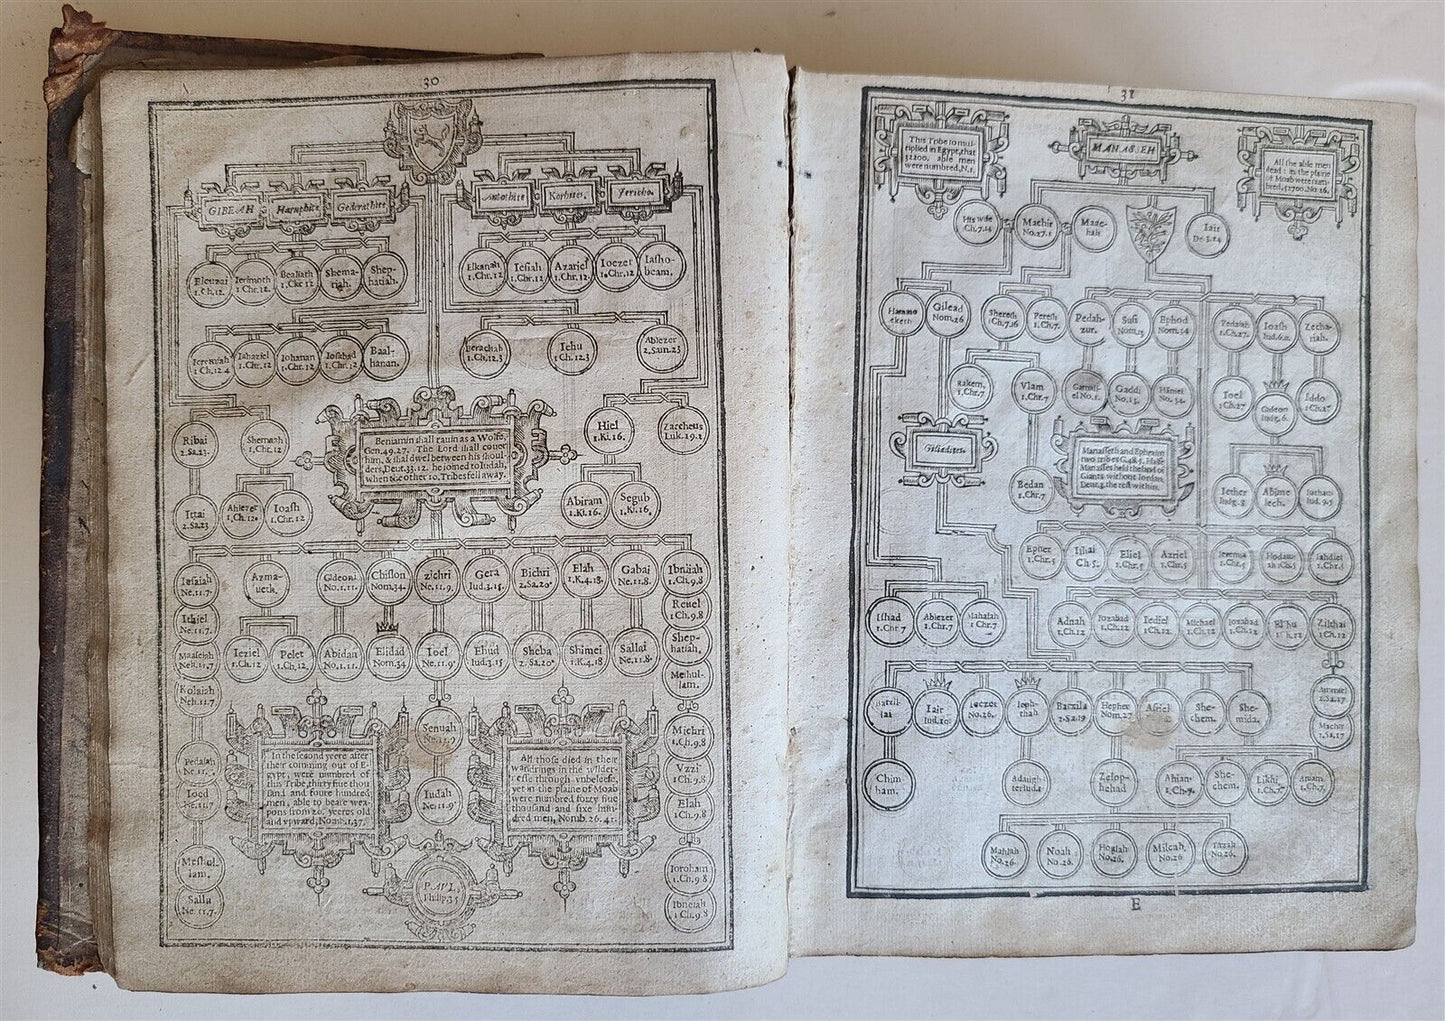 30
GIBEAH
Haruphite
Gederathite
Antothite
Korhites.
Jericho.
Eleuzai
1.Ch.12.
Ierimoth
1.Chr.12.
Bealiath
1.Chr.12
Shema-
riah.
Shep-
hatiah.
Elkanah
1.Chr.12
Iesiah
1.Chr.12
Azariel
1.Chr.12
Ioezer
1.Chr.12
Iasho-
beam.
Ieremiah
1.Ch.12.4
Iahaziel
1.Chr.12
Iohanan
1.Chr.12
Iosabad
1.Chr.12
Baal-
hanan.
Berachah
1.Ch.12.3
Iehu
1.Ch.12.3
Abiezer
2.Sam.23
Ribai
2.Sa.23.
Shemaah
1.Chr.12
Beniamin shall rauin as a Wolfe,
Gen.49.27. The Lord shall couer
him, & shal dwel between his shoul-
ders, Deut.33.12. he joined to Iudah,
when the other 10. Tribes fell away.
Hiel
1.Ki.16.
Zaccheus
Luk.19.2
Ittai
2.Sa.23
Ahiezer
1.Ch.12.
Ioash
1.Chr.12
Abiram
1.Ki.16.
Segub
1.Ki.16.
Iesaiah
Ne.11.7.
Azma-
ueth.
Gideoni
No.1.11.
Chislon
Nom.34.
Zichri
Ne.11.9.
Gera
Iud.3.15.
Bichri
2.Sa.20
Elah
1.K.4.18.
Gabai
Ne.11.8.
Ibniiah
1.Ch.9.8
Ithiel
Ne.11.7.
Reuel
1.Ch.9.8
Maaseiah
Neh.11.7
Ieziel
1.Ch.12
Pelet
1.Ch.12,
Abidan
No.1.11.
Elidad
Nom.34
Ioel
Ne.11.9
Ehud
Iud.3.15
Sheba
2.Sa.20
Shimei
1.K.4.18
Sallai
Ne.11.8.
Shep-
hatiah.
Kolaiah
Neh.11.7
Meshul-
lam.
Senuah
Ne.11.9
Michri
1.Ch.9.8
Pedaiah
Ne.11.
In the second yeere after
their comming out of E-
gypt, were numbred of
this Tribe, thirty fiue thou
sand and foure hundred
men, able to beare wea-
pons from 20. yeeres old
and vpward, Nomb.1.37.
All those died in their
wandrings in the wilder-
nesse through vnbeleefe,
yet in the plaine of Moab
were numbred forty fiue
thousand and sixe hun-
dred men, Nomb.26.41.
Vzzi
1.Ch.9.8
Ioed
Ne.11.7
Iudah
Ne.11.9
Elah
1.Ch.9.8
Meshul-
lam.
PAVL,
Philip.3.5
Ioroham
1.Ch.9.8
Sallu
Ne.11.7.
Ibneiah
1.Ch.9.8
31
This Tribe so mul-
tiplied in Egypt, that
32200. able men
were numbred, N.1.
MANASSEH
All the able men
dead: in the plaine
of Moab were num-
bred, 52700. Nu.26.
His Wife
Ch.7.14
Machir
No.27.1
Maac-
hah
Iair
De.3.14
Hammo
leketh
Gilead
Nom.26
Sheresh
1Ch.7.16
Peresh
1.Ch.7.
Pedah-
zur.
Susi
Nom.13
Ephod
Nom.34
Pedaiah
1.Ch.27.
Ioash
Iud.6.11
Zecha-
riah.
Rakem,
1.Chr.7
Vlam
1.Chr.7
Gamali-
el No.1.
Gaddi
No.13.
Haniel
No.34.
Ioel
1.Ch.27
Gideon
Iudg.6.
Iddo
1.Ch.27
Gileadites.
Manasseth and Ephraim
two tribes G.48.5. Halfe
Manasses held the land of
Giants without Iordan,
Deut.3. the rest within.
Bedan
1.Chr.7
Iether
Iudg.8
Abime
lech.
Iotham
Iud.9.5
Epher
1.Chr.5
Ishai
Ch 5.
Eliel
1.Chr.5
Azriel
1.Chr.5
Ieremia
1.Chr.5
Hodaui-
ah 1.Co.5
Iahdiel
1.Chr.5
Ishad
1.Chr.7
Abiezer
1.Chr.7
Mahalah
1.Chr.7
Adnah
1.Ch.12
Iozabad
1.Ch.12
Iediel
1.Ch.12
Michael
1.Ch.12
Iozabad
1.Ch.12
Elihu
1.Ch.12
Zilthai
1.Ch.12
Barzil-
lai
Iair
Iud.10.
Ieezer
No.26.
Ieph-
thah
Barzila
2.Sa.19
Hepher
Nom.27
Asriel
She-
chem.
She-
mida.
Ammiel
2.Sa.17
Machir
2.Sa.17
Chim
ham.
A daugh
ter Iud.
Zelop-
hehad
Ahian.
1.Ch.7.
She-
chem.
Likhi,
1.Ch.7.
Aniam
1.Ch.7
Mahlah
No.26.
Noah
No.26.
Hoglah
No.26.
Milcah,
No.26
Tirzah
No.26.
E